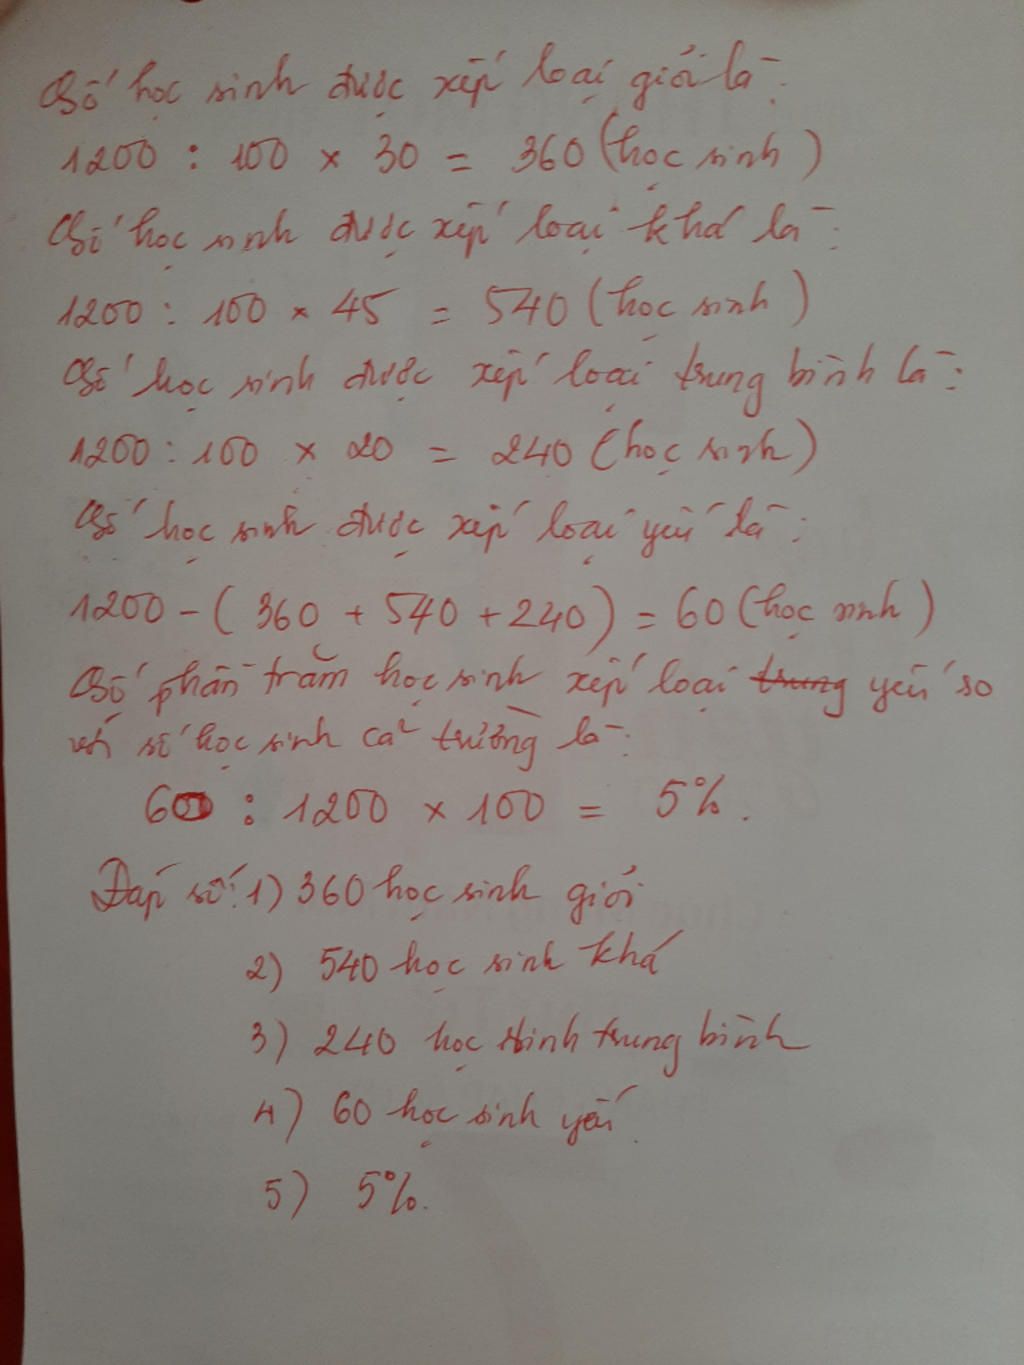 Số học sinh được xếp loại giỏi là:
1200 : 100 × 30 = 360 (học sinh)
Số học sinh được xếp loại khá là:
1200 : 100 × 45 = 540 (học sinh)
Số học sinh được xếp loại trung bình là:
1200 : 100 × 20 = 240 (học sinh)
Số học sinh được xếp loại yếu là:
1200 - ( 360 + 540 + 240 ) = 60 (học sinh)
Số phần trăm học sinh xếp loại trung yếu so
với số học sinh cả trường là:
60 : 1200 × 100 = 5%.
Đáp số: 1) 360 học sinh giỏi
2) 540 học sinh khá
3) 240 học sinh trung bình
4) 60 học sinh yếu
5) 5%.